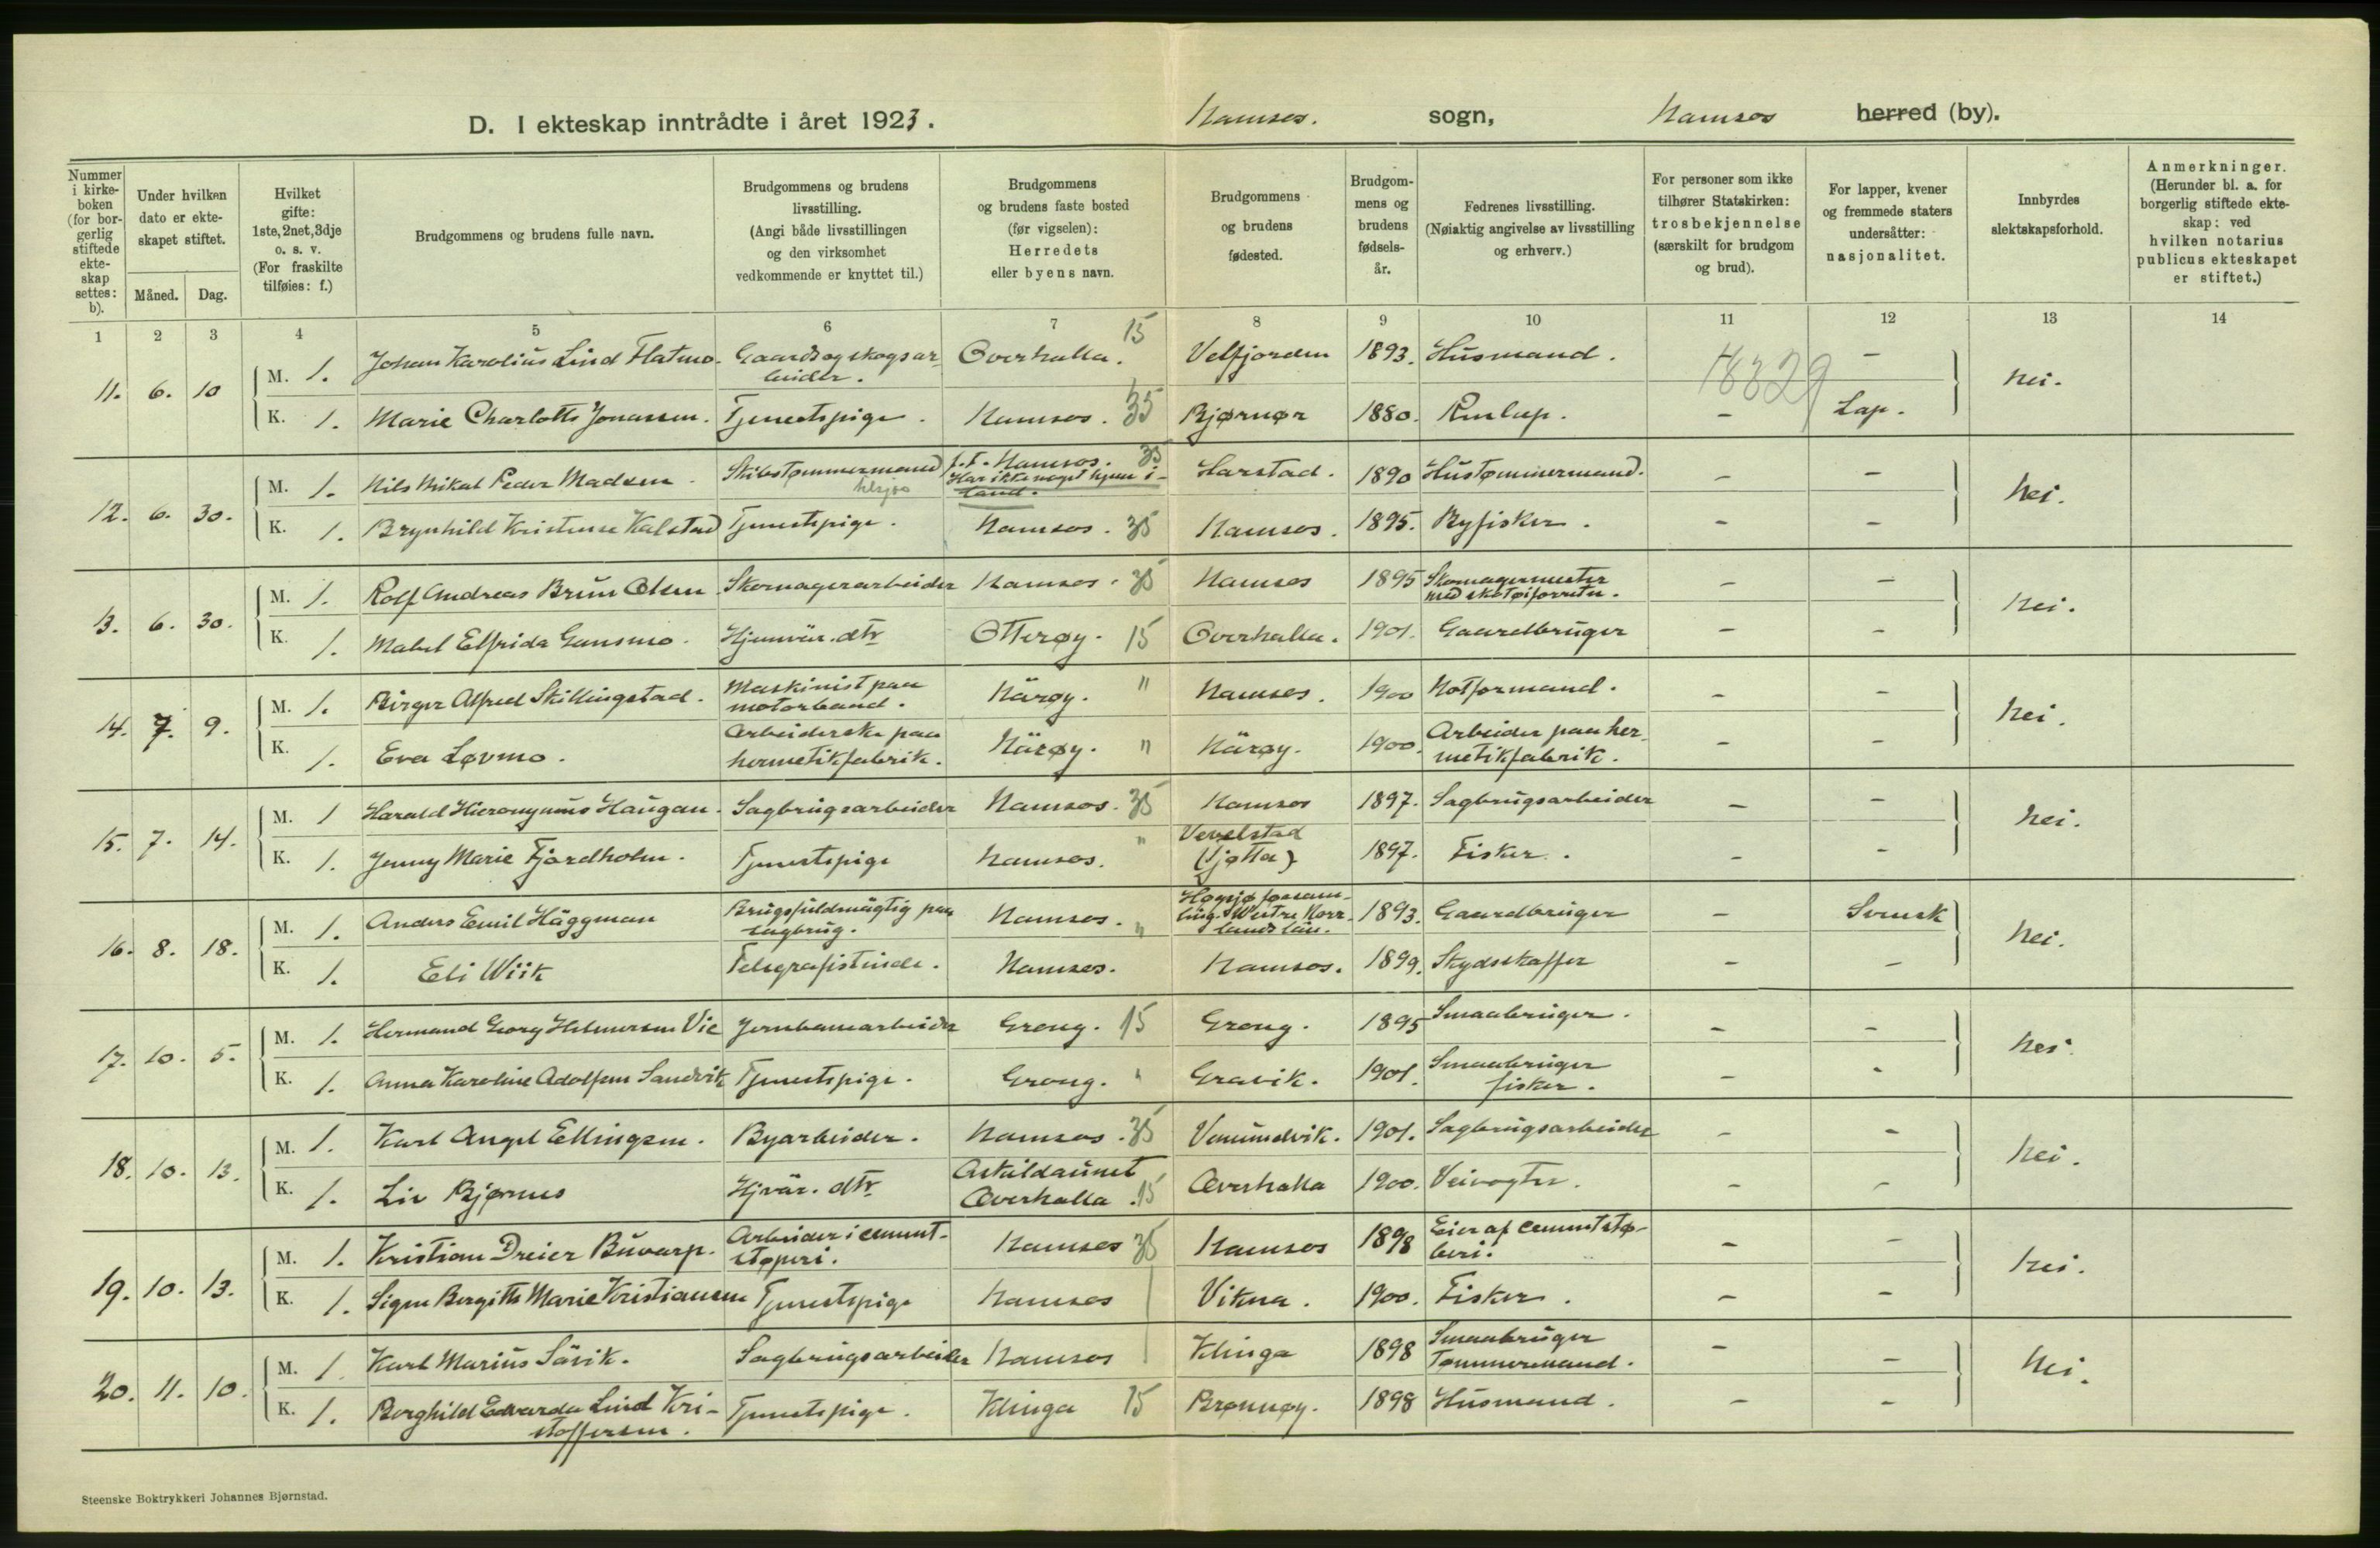 D. I ekteskap inntrådte i året 1923. Namsos. sogn, Namsos herred (by).
Nummer i kirkeboken (for borgerlig stiftede ekteskap settes: b).
Under hvilken dato er ekteskapet stiftet.
Måned. Dag.
Hvilket gifte: 1ste, 2net, 3dje o. s. v. (For fraskilte tilføies: f.)
Brudgommens og brudens fulle navn.
Brudgommens og brudens livsstilling. (Angi både livsstillingen og den virksomhet vedkommende er knyttet til.)
Brudgommens og brudens faste bosted (før vigselen): Herredets eller byens navn.
Brudgommens og brudens fødested.
Brudgommens og brudens fødselsår.
Fedrenes livsstilling. (Nøiaktig angivelse av livsstilling og erhverv.)
For personer som ikke tilhører Statskirken: trosbekjennelse (særskilt for brudgom og brud).
For lapper, kvener og fremmede staters undersåtter: nasjonalitet.
Innbyrdes slektskapsforhold.
Anmerkninger. (Herunder bl. a. for borgerlig stiftede ekteskap: ved hvilken notarius publicus ekteskapet er stiftet.)
1 2 3 4 5 6 7 8 9 10 11 12 13 14
11. 6. 10 M. 1. Johan Karolius Lind Flatmo. Gaards og skogsarbeider. Overhalla. 15 Velfjorden 1893. Husmand. 18329 - Nei.
K. 1. Marie Charlotte Jonassen. Tjenestepige. Namsos. 35 Bjørnør 1880. Rinlap. - Lap.
12. 6. 30. M. 1. Nils Mikal Peder Madsen. Skibstømmermand tilsjøs f.t. Namsos. 35 Har ikke noget hjem i land. Harstad. 1890 Hustømmermand. - - Nei.
K. 1. Brynhild Kristense Kalstad Tjenestepige. Namsos. 35 Namsos. 1895. Byfisker. - -
13. 6. 30. M. 1. Rolf Andreas Brun Olsen. Skomagerarbeider Namsos. 35 Namsos 1895 Skomagermester med skotøiforretn. - - Nei.
K. 1. Mabel Elfrida Gansmo. Hjemvär. dtr Otterøy. 15 Overhalla. 1901. Gaardbruger - -
14. 7. 9. M. 1. Birger Alfred Skillingstad. Maskinist paa motorbaad. Närøy. " Namsos. 1900 Notformand. - - Nei.
K. 1. Eva Løvmo. Arbeiderske paa hermetikfabrik. Närøy. " Närøy. 1900. Arbeider paa hermetikfabrik. - -
15. 7. 14. M. 1 Harald Hieronymus Haugan. Sagbrugsarbeider Namsos. 35 Namsos 1897. Sagbrugsarbeider - - Nei.
K. 1. Jenny Marie Fjordholm. Tjenestepige Namsos. " Vevelstad (Tjøtta) 1897. Fisker. - -
16. 8. 18. M. 1. Anders Emil Häggman Brugsfuldmägtig paa sagbrug. Namsos. " Högsjø forsamling. Westre Norrlands län. 1893. Gaardbruger - Svensk Nei.
K. 1. Eli Wiik Telegrafistinde. Namsos. Namsos. 1899. Skydsskaffer - -
17. 10. 5. M. 1. Hermand Georg Hilmersen Vie Jernbanearbeider Grong. 15 Grong. 1895 Smaabruger. - - Nei.
K. 1. Anna Karoline Adolfsen Sandvik Tjenestepige. Grong. " Gravik. 1901. Smaabruger fisker. - -
18. 10. 13. M. 1. Karl Angel Ellingsen. Byarbeider. Namsos. 35 Vemundvik. 1901. Sagbrugsarbeider - - Nei.
K. 1. Liv Bjørnes Hjvär. dtr Askildaunet Overhalla. 15 Overhalla 1900. Veivogter. - -
19. 10. 13. M. 1. Kristian Dreier Buvarp. Arbeider i cementstøperi. Namsos 35 Namsos 1898 Eier af cementstøberi. - - Nei.
K. 1. Signe Bergitte Marie Kristiansen Tjenestepige Namsos Vikna. 1900. Fisker. - -
20. 11. 10. M. 1. Karl Marius Sävik. Sagbrugsarbeider Namsos Klinga 1898 Smaabruger Tømmermand. - - Nei.
K. 1. Borghild Edvarda Lind Kristoffersen. Tjenestepige. Klinga 15 Brønnøy. 1898 Husmand. - -
Steenske Boktrykkeri Johannes Bjørnstad.